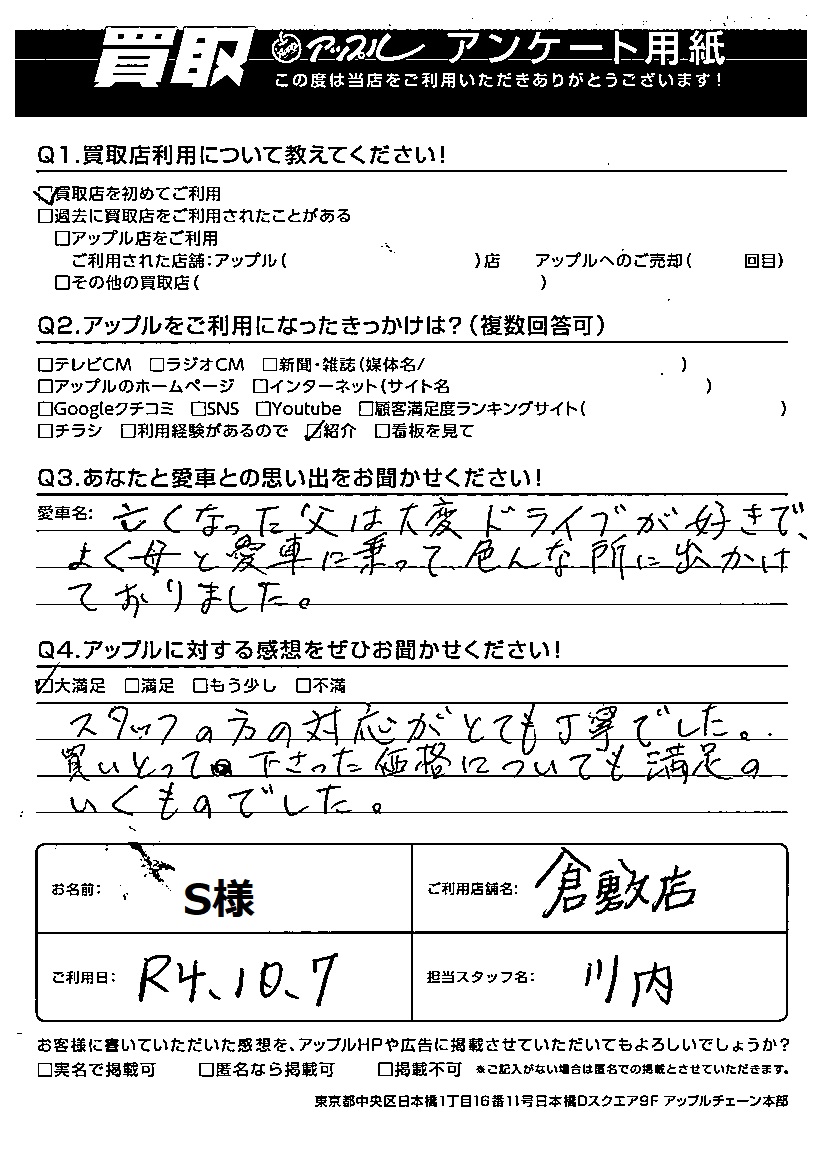 買取 アップル アンケート用紙
この度は当店をご利用いただきありがとうございます!
Q1.買取店利用について教えてください!
☑買取店を初めてご利用
□過去に買取店をご利用されたことがある
□アップル店をご利用
ご利用された店舗:アップル( )店 アップルへのご売却( 回目)
□その他の買取店( )
Q2.アップルをご利用になったきっかけは?(複数回答可)
□テレビCM □ラジオCM □新聞・雑誌(媒体名/ )
□アップルのホームページ □インターネット(サイト名 )
□Googleクチコミ □SNS □Youtube □顧客満足度ランキングサイト( )
□チラシ □利用経験があるので ☑紹介 □看板を見て
Q3.あなたと愛車との思い出をお聞かせください!
愛車名: 亡くなった父は大変ドライブが好きで、
よく母と愛車に乗って、色んな所に出かけ
ておりました。
Q4.アップルに対する感想をぜひお聞かせください!
☑大満足 □満足 □もう少し □不満
スタッフの方の対応がとても丁寧でした。
買いとって下さった価格についても満足の
いくものでした。
お名前: S様 ご利用店舗名: 倉敷店
ご利用日: R4、10、7 担当スタッフ名: 川内
お客様に書いていただいた感想を、アップルHPや広告に掲載させていただいてもよろしいでしょうか?
□実名で掲載可 □匿名なら掲載可 □掲載不可 ※ご記入がない場合は匿名での掲載とさせていただきます。
東京都中央区日本橋1丁目16番11号日本橋Dスクエア9F アップルチェーン本部